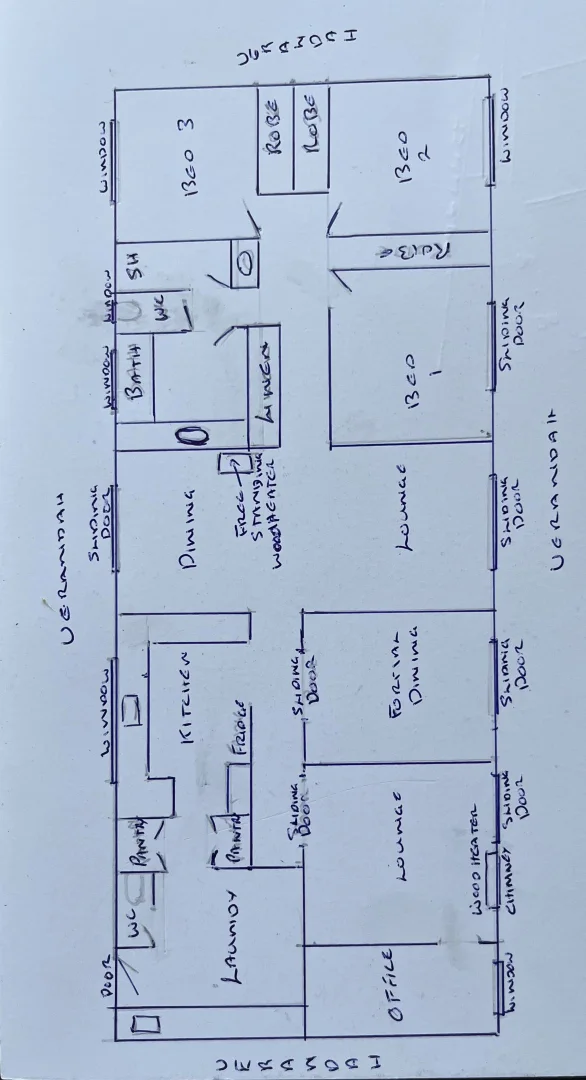 VERANDAH
DOOR
WINDOW
SLIDING
DOOR
WINDOW
WINDOW
WINDOW
WC
PANTRY
KITCHEN
DINING
BATH
WC
SH
BED 3
LAUNDY
PANTRY
FRIDGE
FREE
STANDING
WOODHEATER
LINEN
ROBE
ROBE
VERANDAH
VERANDAH
SLIDING
DOOR
SLIDING
DOOR
OFFICE
LOUNGE
FORMAL
DINING
LOUNGE
BED
1
ROBE
BED
2
WOODHEATER
CHIMNEY
WINDOW
SLIDING
DOOR
SLIDING
DOOR
SLIDING
DOOR
SLIDING
DOOR
WINDOW
VERANDAH